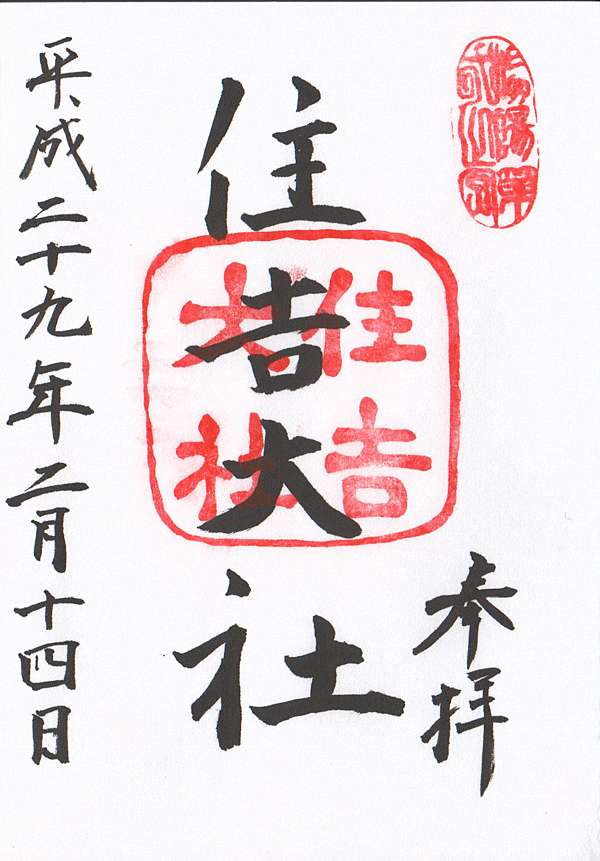 奉拝
住吉大社
住吉
大社
平成二十九年二月十四日